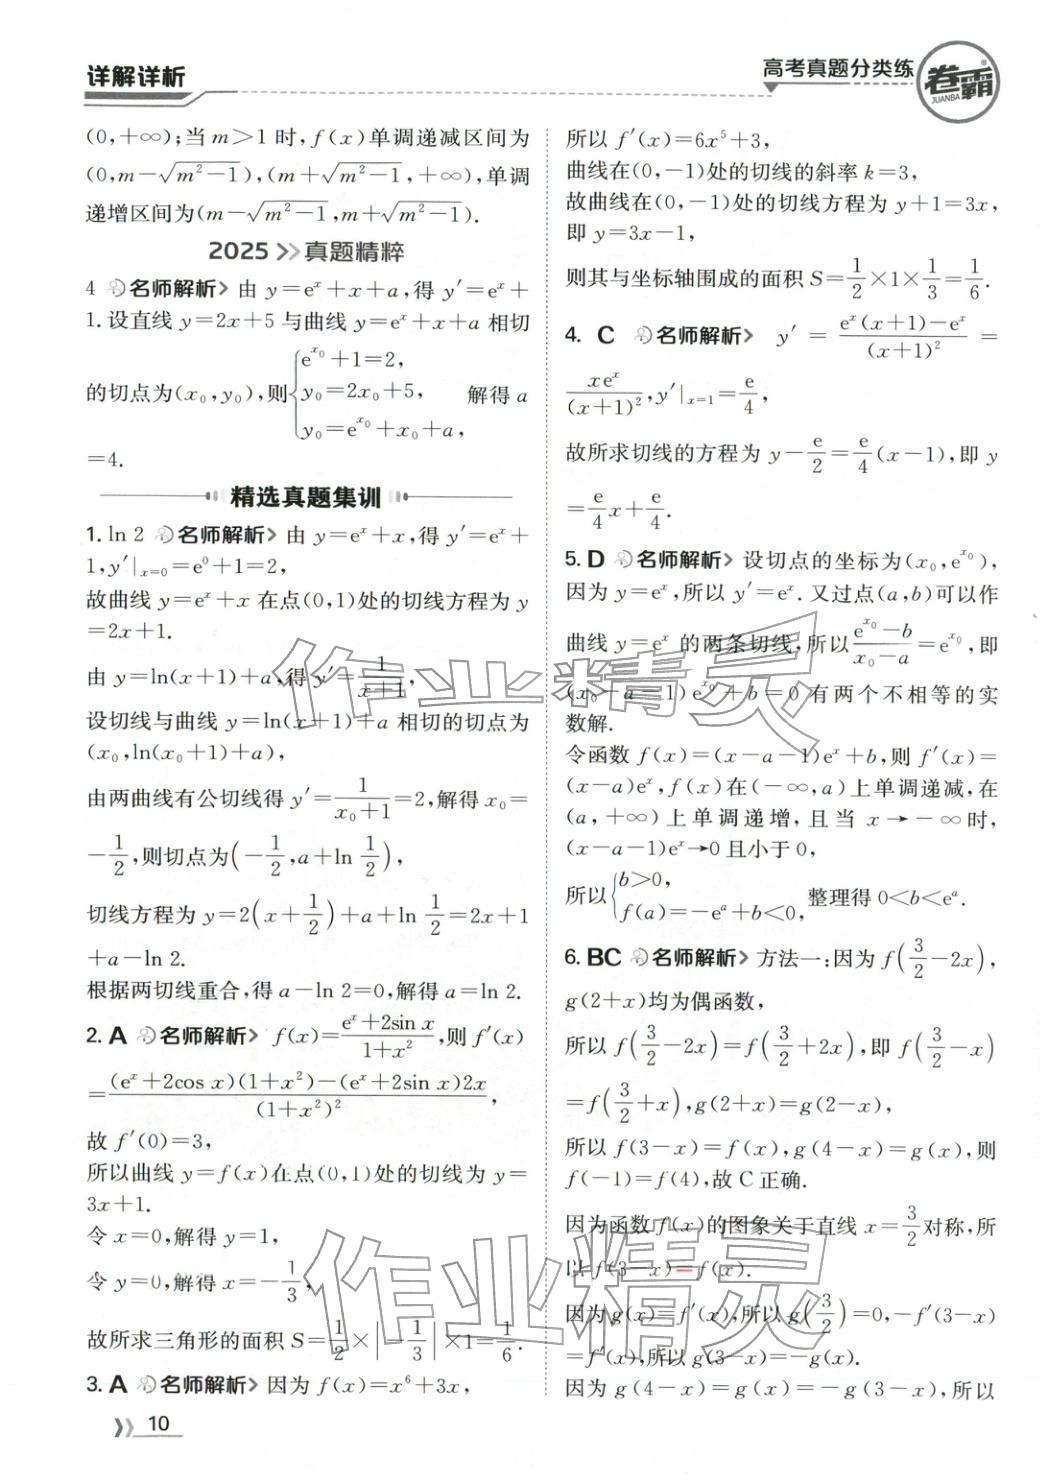 详解详析
高考真题分类练 卷霸 JUANBA
(0,+∞);当 m>1 时,f(x)单调递减区间为
(0,m-√(m²-1)),(m+√(m²-1),+∞),单调
递增区间为(m-√(m²-1),m+√(m²-1)).
2025>>真题精粹
4 名师解析> 由 y=eˣ+x+a,得 y′=eˣ+
1.设直线 y=2x+5 与曲线 y=eˣ+x+a 相切
的切点为(x₀,y₀),则{e^{x₀}+1=2, y₀=2x₀+5, y₀=e^{x₀}+x₀+a, 解得 a
=4.
精选真题集训
1. ln 2 名师解析> 由 y=eˣ+x,得 y′=eˣ+
1,y′|ₓ₌₀=e⁰+1=2,
故曲线 y=eˣ+x 在点(0,1)处的切线方程为 y
=2x+1.
由 y=ln(x+1)+a,得 y′=1/(x+1),
设切线与曲线 y=ln(x+1)+a 相切的切点为
(x₀,ln(x₀+1)+a),
由两曲线有公切线得 y′=1/(x₀+1)=2,解得 x₀=
-1/2,则切点为(-1/2,a+ln 1/2),
切线方程为 y=2(x+1/2)+a+ln 1/2=2x+1
+a-ln 2.
根据两切线重合,得 a-ln 2=0,解得 a=ln 2.
2. A 名师解析> f(x)=(eˣ+2sin x)/(1+x²),则 f′(x)
=[(eˣ+2cos x)(1+x²)-(eˣ+2sin x)2x]/(1+x²)²,
故 f′(0)=3,
所以曲线 y=f(x)在点(0,1)处的切线为 y=
3x+1.
令 x=0,解得 y=1,
令 y=0,解得 x=-1/3,
故所求三角形的面积 S=1/2×|-1/3|×1=1/6.
3. A 名师解析> 因为 f(x)=x⁶+3x,
所以 f′(x)=6x⁵+3,
曲线在(0,-1)处的切线的斜率 k=3,
故曲线在(0,-1)处的切线方程为 y+1=3x,
即 y=3x-1,
则其与坐标轴围成的面积 S=1/2×1×1/3=1/6.
4. C 名师解析> y′=[eˣ(x+1)-eˣ]/(x+1)²=
xeˣ/(x+1)²,y′|ₓ₌₁=e/4,
故所求切线的方程为 y-e/2=e/4(x-1),即 y
=e/4x+e/4.
5. D 名师解析> 设切点的坐标为(x₀,e^{x₀}),
因为 y=eˣ,所以 y′=eˣ.又过点(a,b)可以作
曲线 y=eˣ 的两条切线,所以(e^{x₀}-b)/(x₀-a)=e^{x₀},即
(x₀-a-1)e^{x₀}+b=0 有两个不相等的实
数解.
令函数 f(x)=(x-a-1)eˣ+b,则 f′(x)=
(x-a)eˣ,f(x)在(-∞,a)上单调递减,在
(a,+∞)上单调递增,且当 x→-∞时,
(x-a-1)eˣ→0 且小于 0,
所以{b>0, f(a)=-eᵃ+b<0, 整理得 0<b<eᵃ.
6. BC 名师解析> 方法一:因为 f(3/2-2x),
g(2+x)均为偶函数,
所以 f(3/2-2x)=f(3/2+2x),即 f(3/2-x)
=f(3/2+x),g(2+x)=g(2-x),
所以 f(3-x)=f(x),g(4-x)=g(x),则
f(-1)=f(4),故 C 正确.
因为函数 f(x)的图象关于直线 x=3/2对称,所
以 f(3-x)=f(x).
因为 g(x)=f′(x),所以 g(3/2)=0,-f′(3-x)
=f′(x),所以 g(3-x)=-g(x).
因为 g(4-x)=g(x)=-g(3-x),所以
10
作业精灵
作业精灵